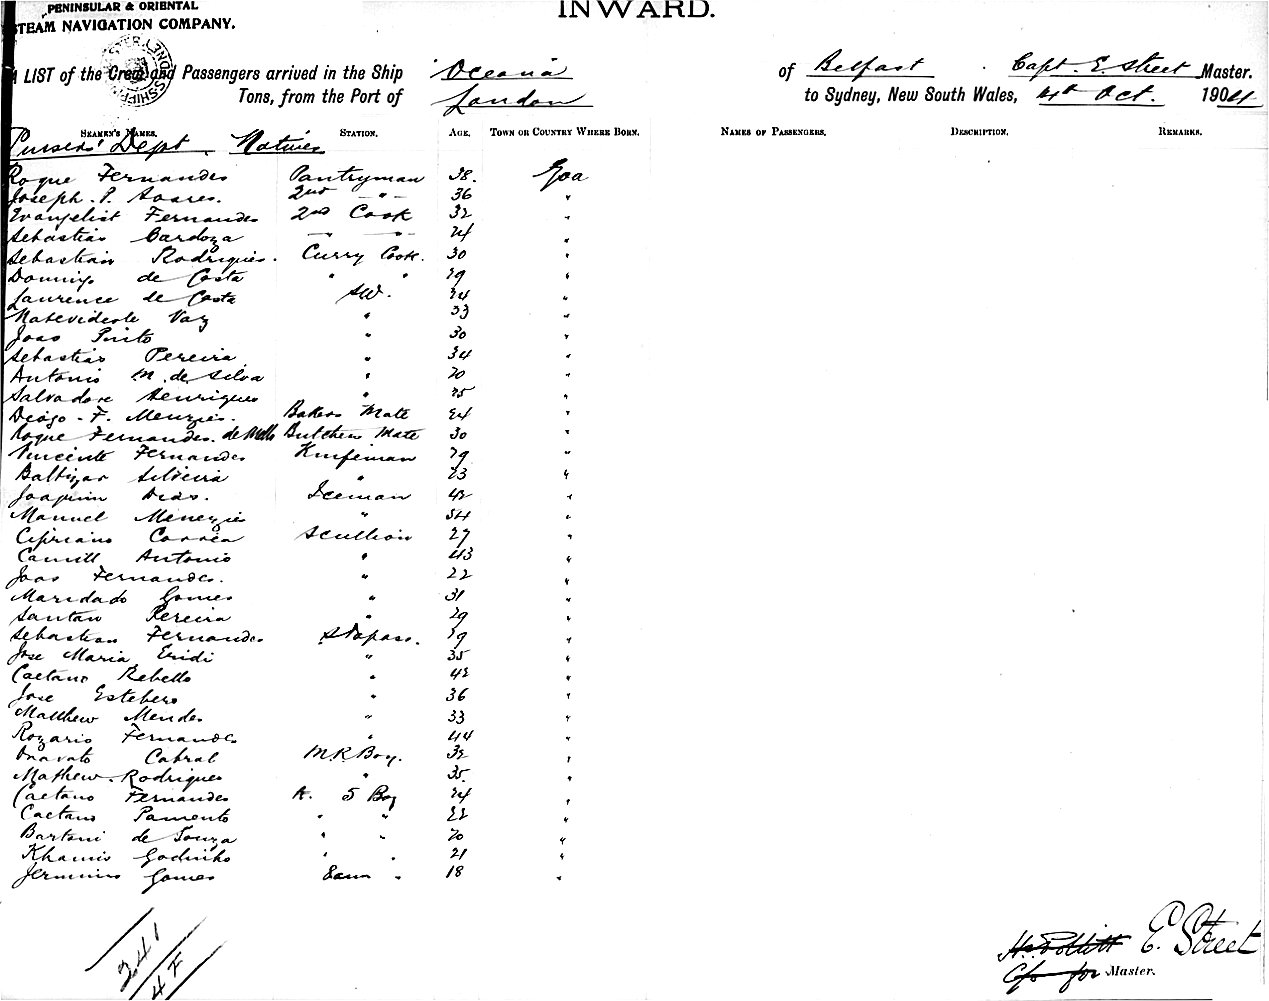 PENINSULAR & ORIENTAL
STEAM NAVIGATION COMPANY.
INWARD.
A LIST of the Crew and Passengers arrived in the Ship Oceania of Belfast Capt. E. Street Master.
Tons, from the Port of London to Sydney, New South Wales, 4th Oct. 1904
SEAMEN'S NAMES. STATION. AGE. TOWN OR COUNTRY WHERE BORN. NAMES OF PASSENGERS. DESCRIPTION. REMARKS.
Pursers' Dept. Natives
Roque Fernandes Pantryman 38. Goa
Joseph. P. Soares. 2nd - " - 36 "
Evangelist Fernandes 2nd Cook 32 "
Sebastias Cardoza - " - 24 "
Sebastian Rodrigues. Curry Cook. 30 "
Domingo de Costa " " 29 "
Laurence de Costa SW. 24 "
Vaz " 33 "
Joao Pinto " 30 "
Sebastias Pereira " 34 "
Antonio M. de Silva " 20 "
Salvadore Henriques " 25 "
Diogo - F. Menzies. Bakers Mate 24 "
Roque Fernandes. de Mello Butchers Mate 30 "
Vincente Fernandes Knifeman 29 "
Baltizar Silveira " 23 "
Joaquim Dias. Iceman 42 "
Manuel Menezies " 34 "
Cipriano Correa Scullion 27 "
Camill Antonio " 43 "
Joao Fernandes. " 22 "
Maridado Gomes " 31 "
Santan Pereira " 29 "
Sebastian Fernandes 29 "
Jose Maria " 35 "
Caetano Rebello " 42 "
Jose Estebero " 36 "
Matthew Mendes " 33 "
Rozario Fernandes " 44 "
Cabral M.R Boy. 32 "
Mathew Rodrigues " 35 "
Caetano Fernandes S Boy 24 "
Caetano Pamento " " 22 "
de Souza " " 20 "
Khamis Godinho " " 21 "
Gomes " 18 "
241
4 F
E. Street
Master.